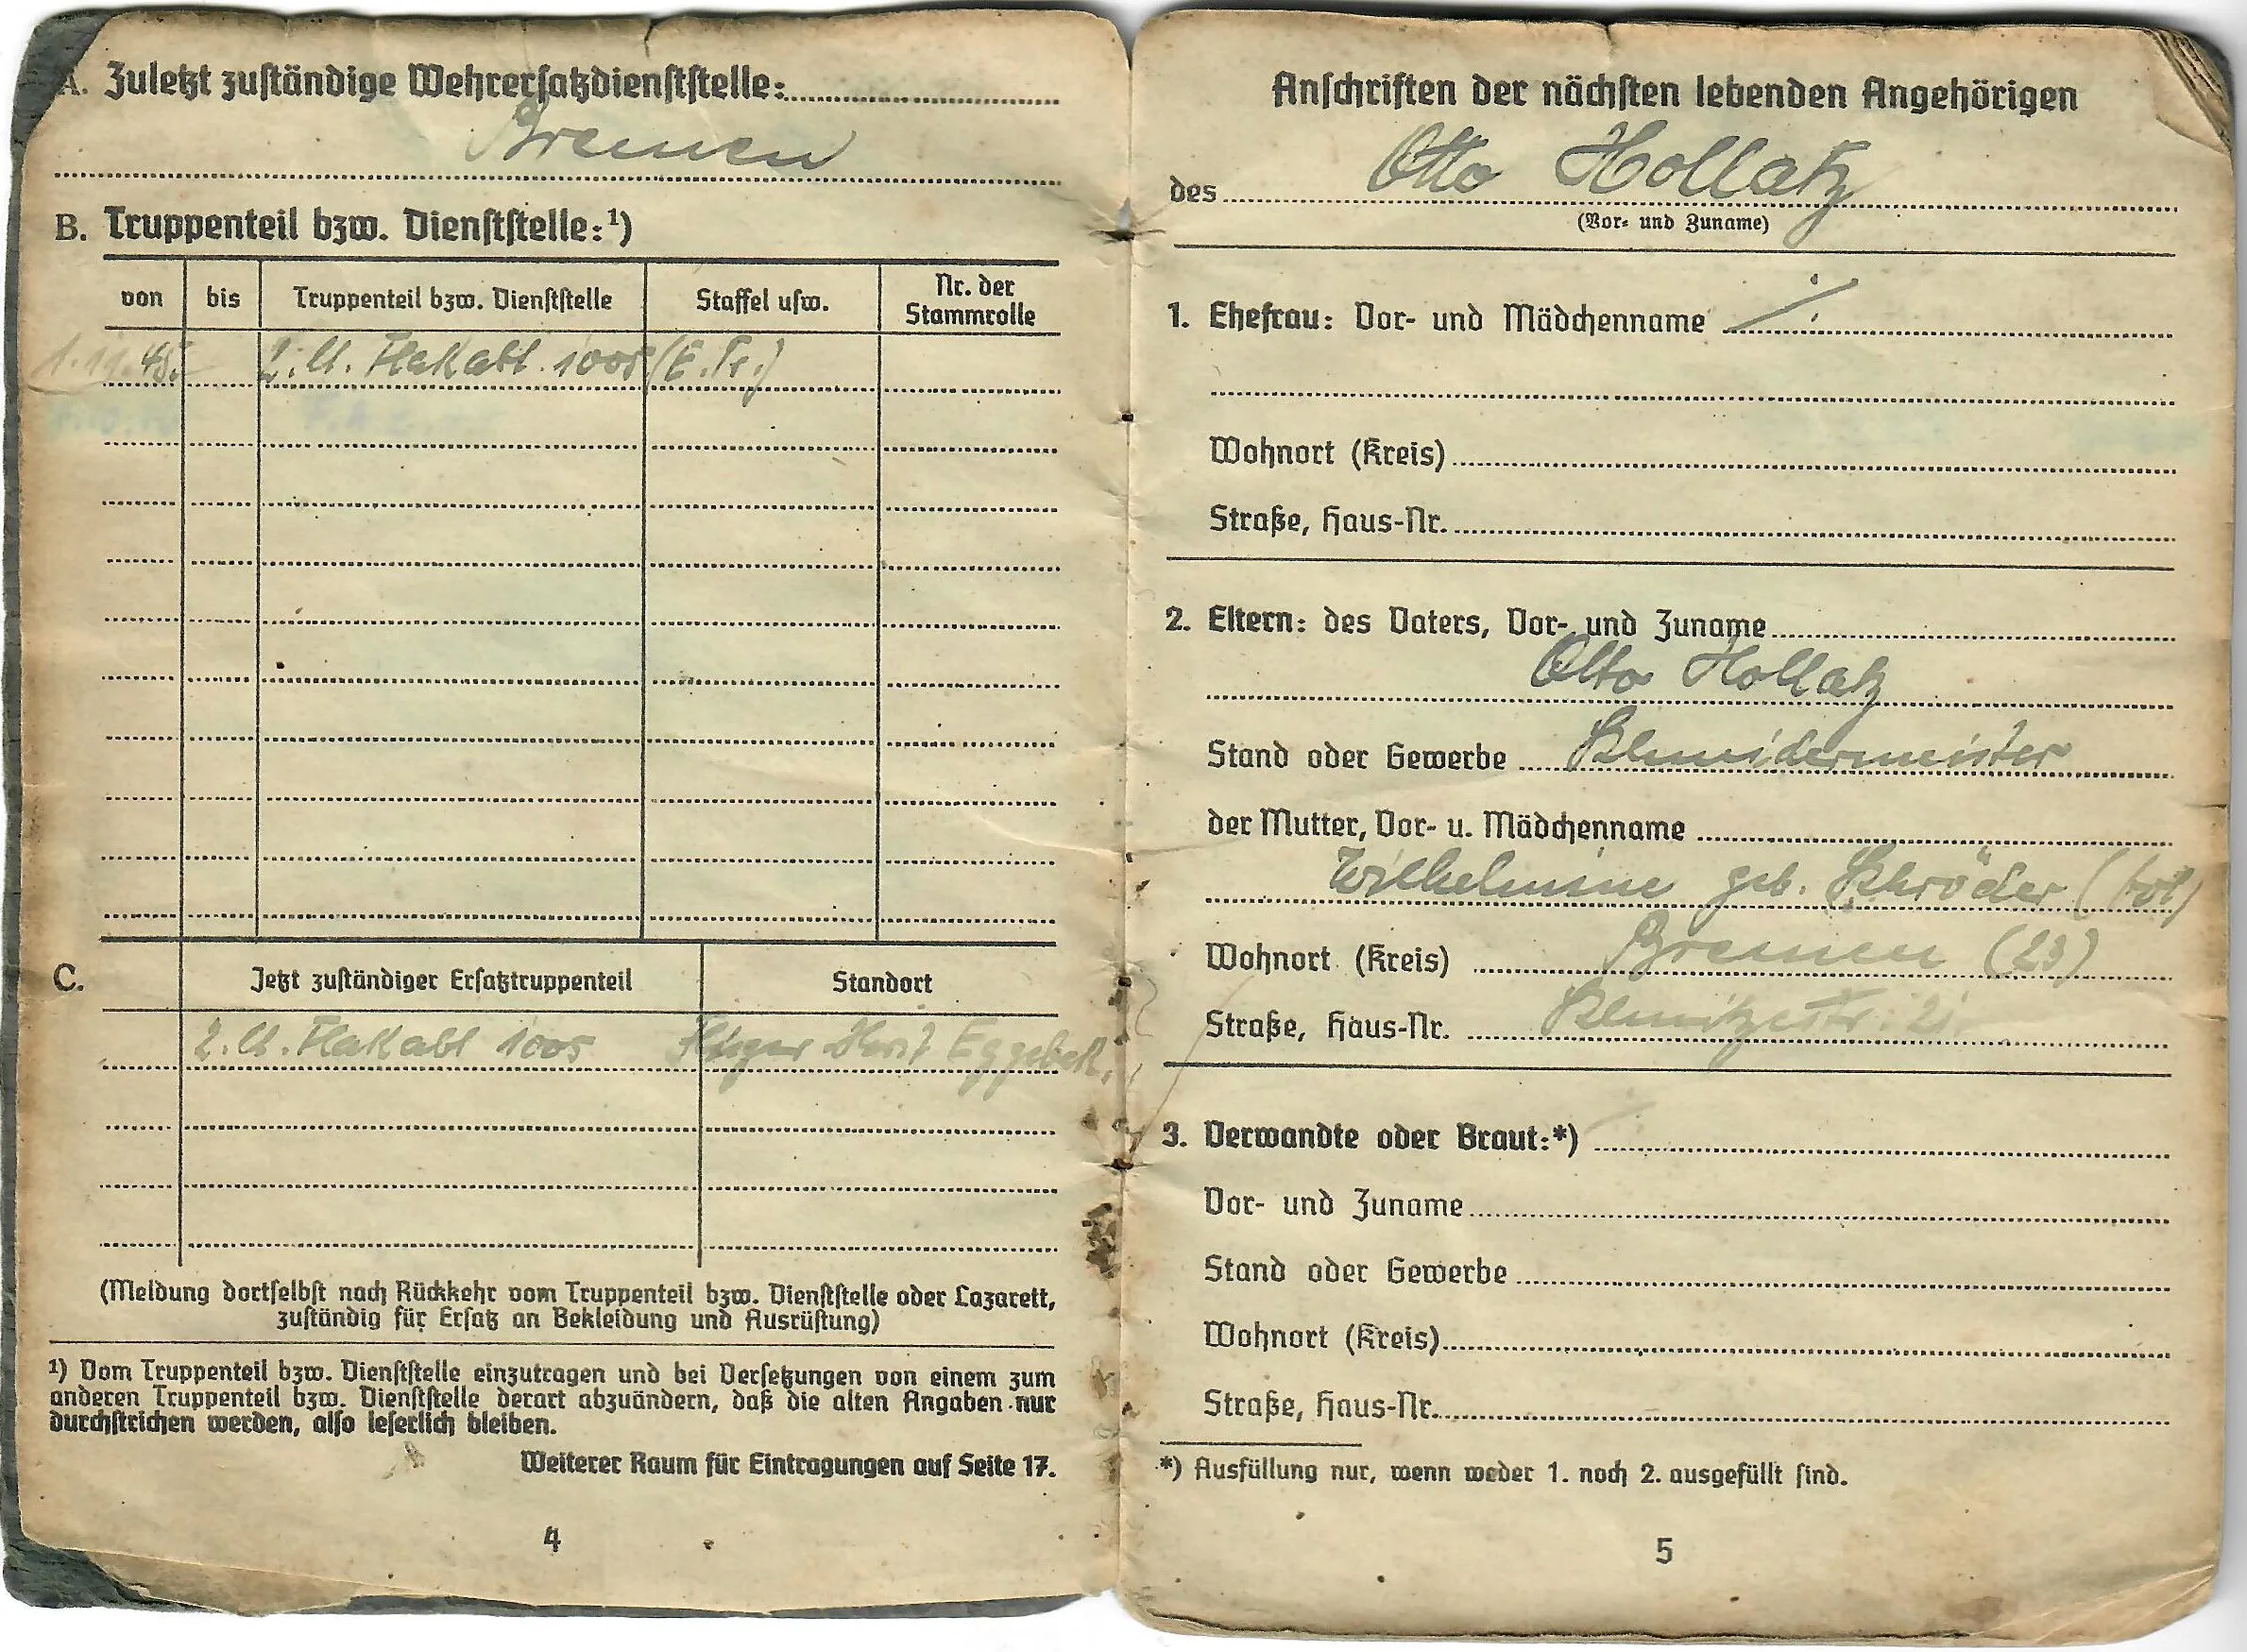 A. Zuletzt zuständige Wehrersatzdienststelle:
Bremen
B. Truppenteil bzw. Dienststelle:¹)
von bis Truppenteil bzw. Dienststelle Staffel usw. Nr. der Stammrolle
2. U. Flakabt. 1005 (E. Tr.)
C. Jetzt zuständiger Ersatztruppenteil Standort
2. U. Flakabt 1005 Eggebek
(Meldung dortselbst nach Rückkehr vom Truppenteil bzw. Dienststelle oder Lazarett,
zuständig für Ersatz an Bekleidung und Ausrüstung)
¹) Vom Truppenteil bzw. Dienststelle einzutragen und bei Versetzungen von einem zum
anderen Truppenteil bzw. Dienststelle derart abzuändern, daß die alten Angaben nur
durchstrichen werden, also leserlich bleiben.
Weiterer Raum für Eintragungen auf Seite 17.
4
Anschriften der nächsten lebenden Angehörigen
des Otto Hollatz
(Vor- und Zuname)
1. Ehefrau: Vor- und Mädchenname ·/.
Wohnort (Kreis)
Straße, Haus-Nr.
2. Eltern: des Vaters, Vor- und Zuname
Otto Hollatz
Stand oder Gewerbe Schneidermeister
der Mutter, Vor- u. Mädchenname
Wilhelmine geb. Schröder (tot)
Wohnort (Kreis) Bremen (23)
Straße, Haus-Nr. 21
3. Verwandte oder Braut:*)
Vor- und Zuname
Stand oder Gewerbe
Wohnort (Kreis)
Straße, Haus-Nr.
*) Ausfüllung nur, wenn weder 1. noch 2. ausgefüllt sind.
5